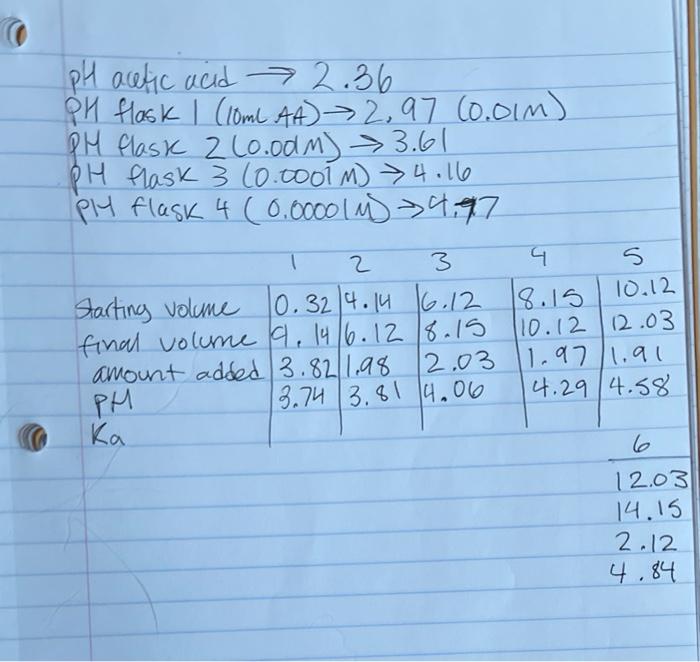 pH acetic acid → 2.36
PH flask 1 (10mL AA) → 2.97 (0.01M)
PH flask 2 (0.001M) → 3.61
PH flask 3 (0.0001 M) → 4.16
PH flask 4 (0.00001 M) → 4.97
1 2 3 4 5
Starting volume 0.32 4.14 6.12 8.15 10.12
final volume 4.14 6.12 8.15 10.12 12.03
amount added 3.82 1.98 2.03 1.97 1.91
PH 3.74 3.81 4.06 4.29 4.58
Ka
6
12.03
14.15
2.12
4.84